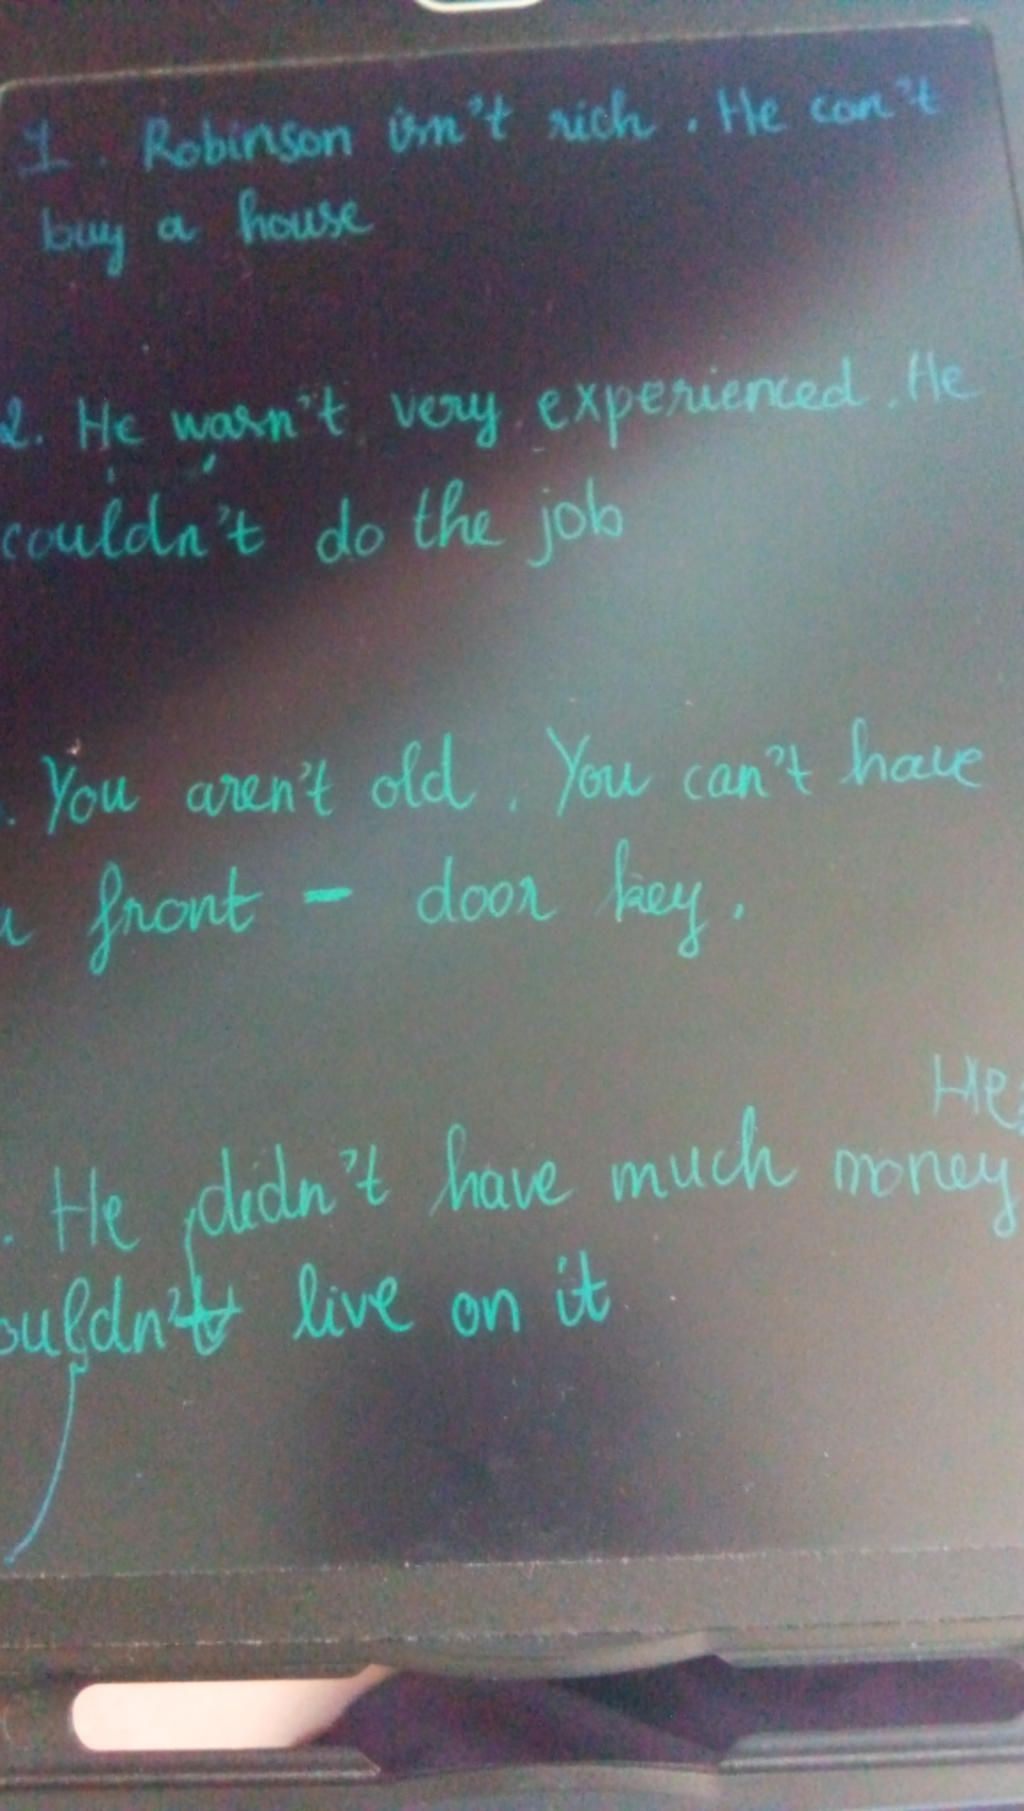 1. Robinson isn't rich. He can't
buy a house
2. He wasn't very experienced. He
couldn't do the job
. You aren't old. You can't have
a front - door key.
He
. He didn't have much money
ouldn't live on it